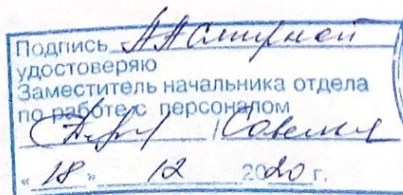 Подпись А А Смирной
удостоверяю
Заместитель начальника отдела
по работе с персоналом
« 18 » 12 2020 г.